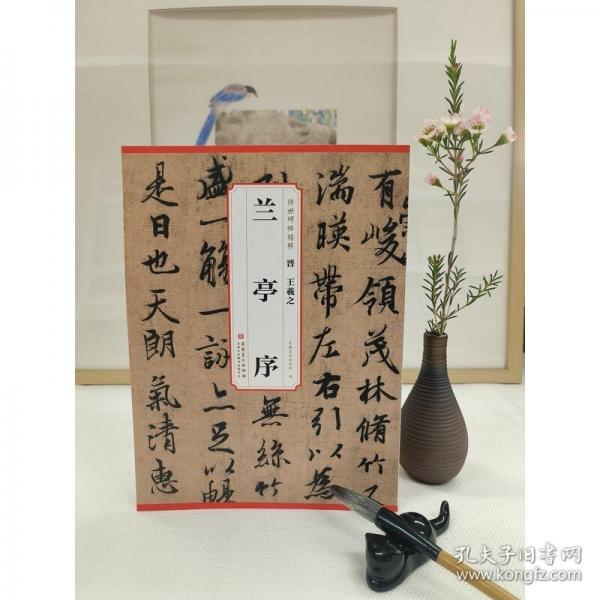 有峻領茂林脩竹
湍暎帶左右引以為
無絲竹
盛一觴一詠亦足以暢
是日也天朗氣清惠
传世碑帖精粹
晋 王羲之
兰亭序
孔夫子旧书网
www.kongfz.com